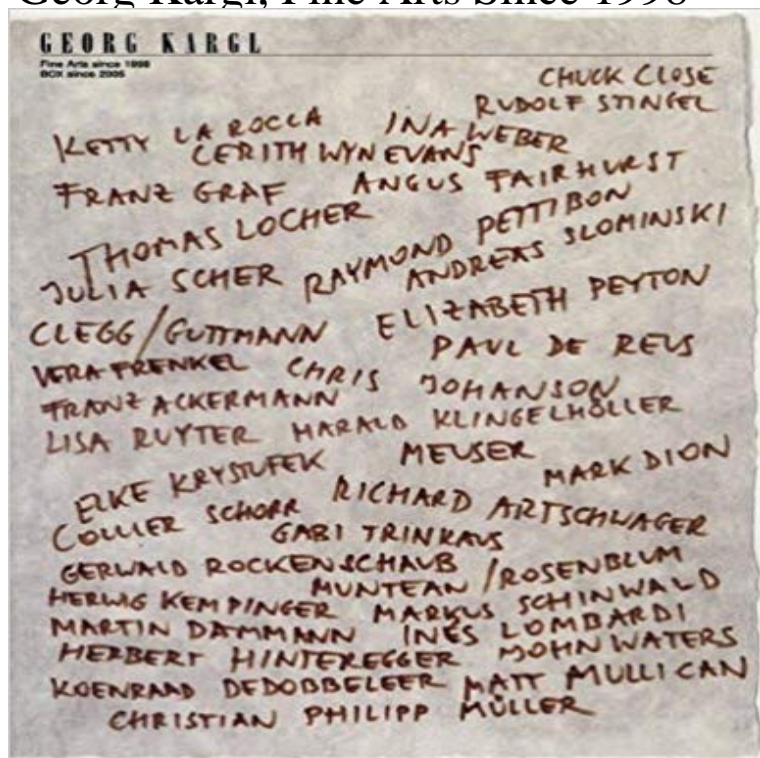 Georg Kargl, Fine Arts Since 1998
GEORG KARGL
Fine Arts since 1998
BOX since 2005
CHUCK CLOSE
RUDOLF STINGEL
KETTY LA ROCCA INA WEBER
CERITH WYN EVANS
FRANZ GRAF ANGUS FAIRHURST
THOMAS LOCHER RAYMOND PETTIBON
JULIA SCHER ANDREAS SLOMINSKI
CLEGG/GUTTMANN ELIZABETH PEYTON
VERA FRENKEL CHRIS JOHANSON PAUL DE REUS
FRANZ ACKERMANN
LISA RUYTER HARALD KLINGELHÖLLER
ELKE KRYSTUFEK MEUSER MARK DION
COLLIER SCHORR RICHARD ARTSCHWAGER
GABI TRINKAUS
GERWALD ROCKENSCHAUB
MUNTEAN/ROSENBLUM
HERWIG KEMPINGER MARKUS SCHINWALD
MARTIN DAMMANN INÉS LOMBARDI
HERBERT HINTEREGGER JOHN WATERS
KOENRAAD DEDOBBELEER MATT MULLICAN
CHRISTIAN PHILIPP MÜLLER